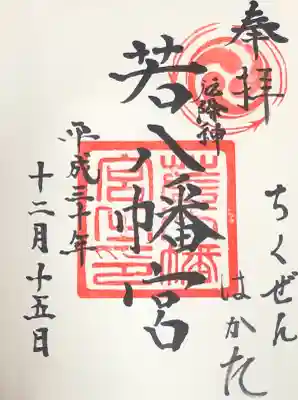 奉拝
ちくぜん
はかた
厄除神
若八幡宮
平成三十年
十二月十五日